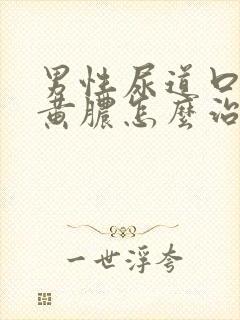 男性尿道口
黄膿怎麼治
一世浮夸